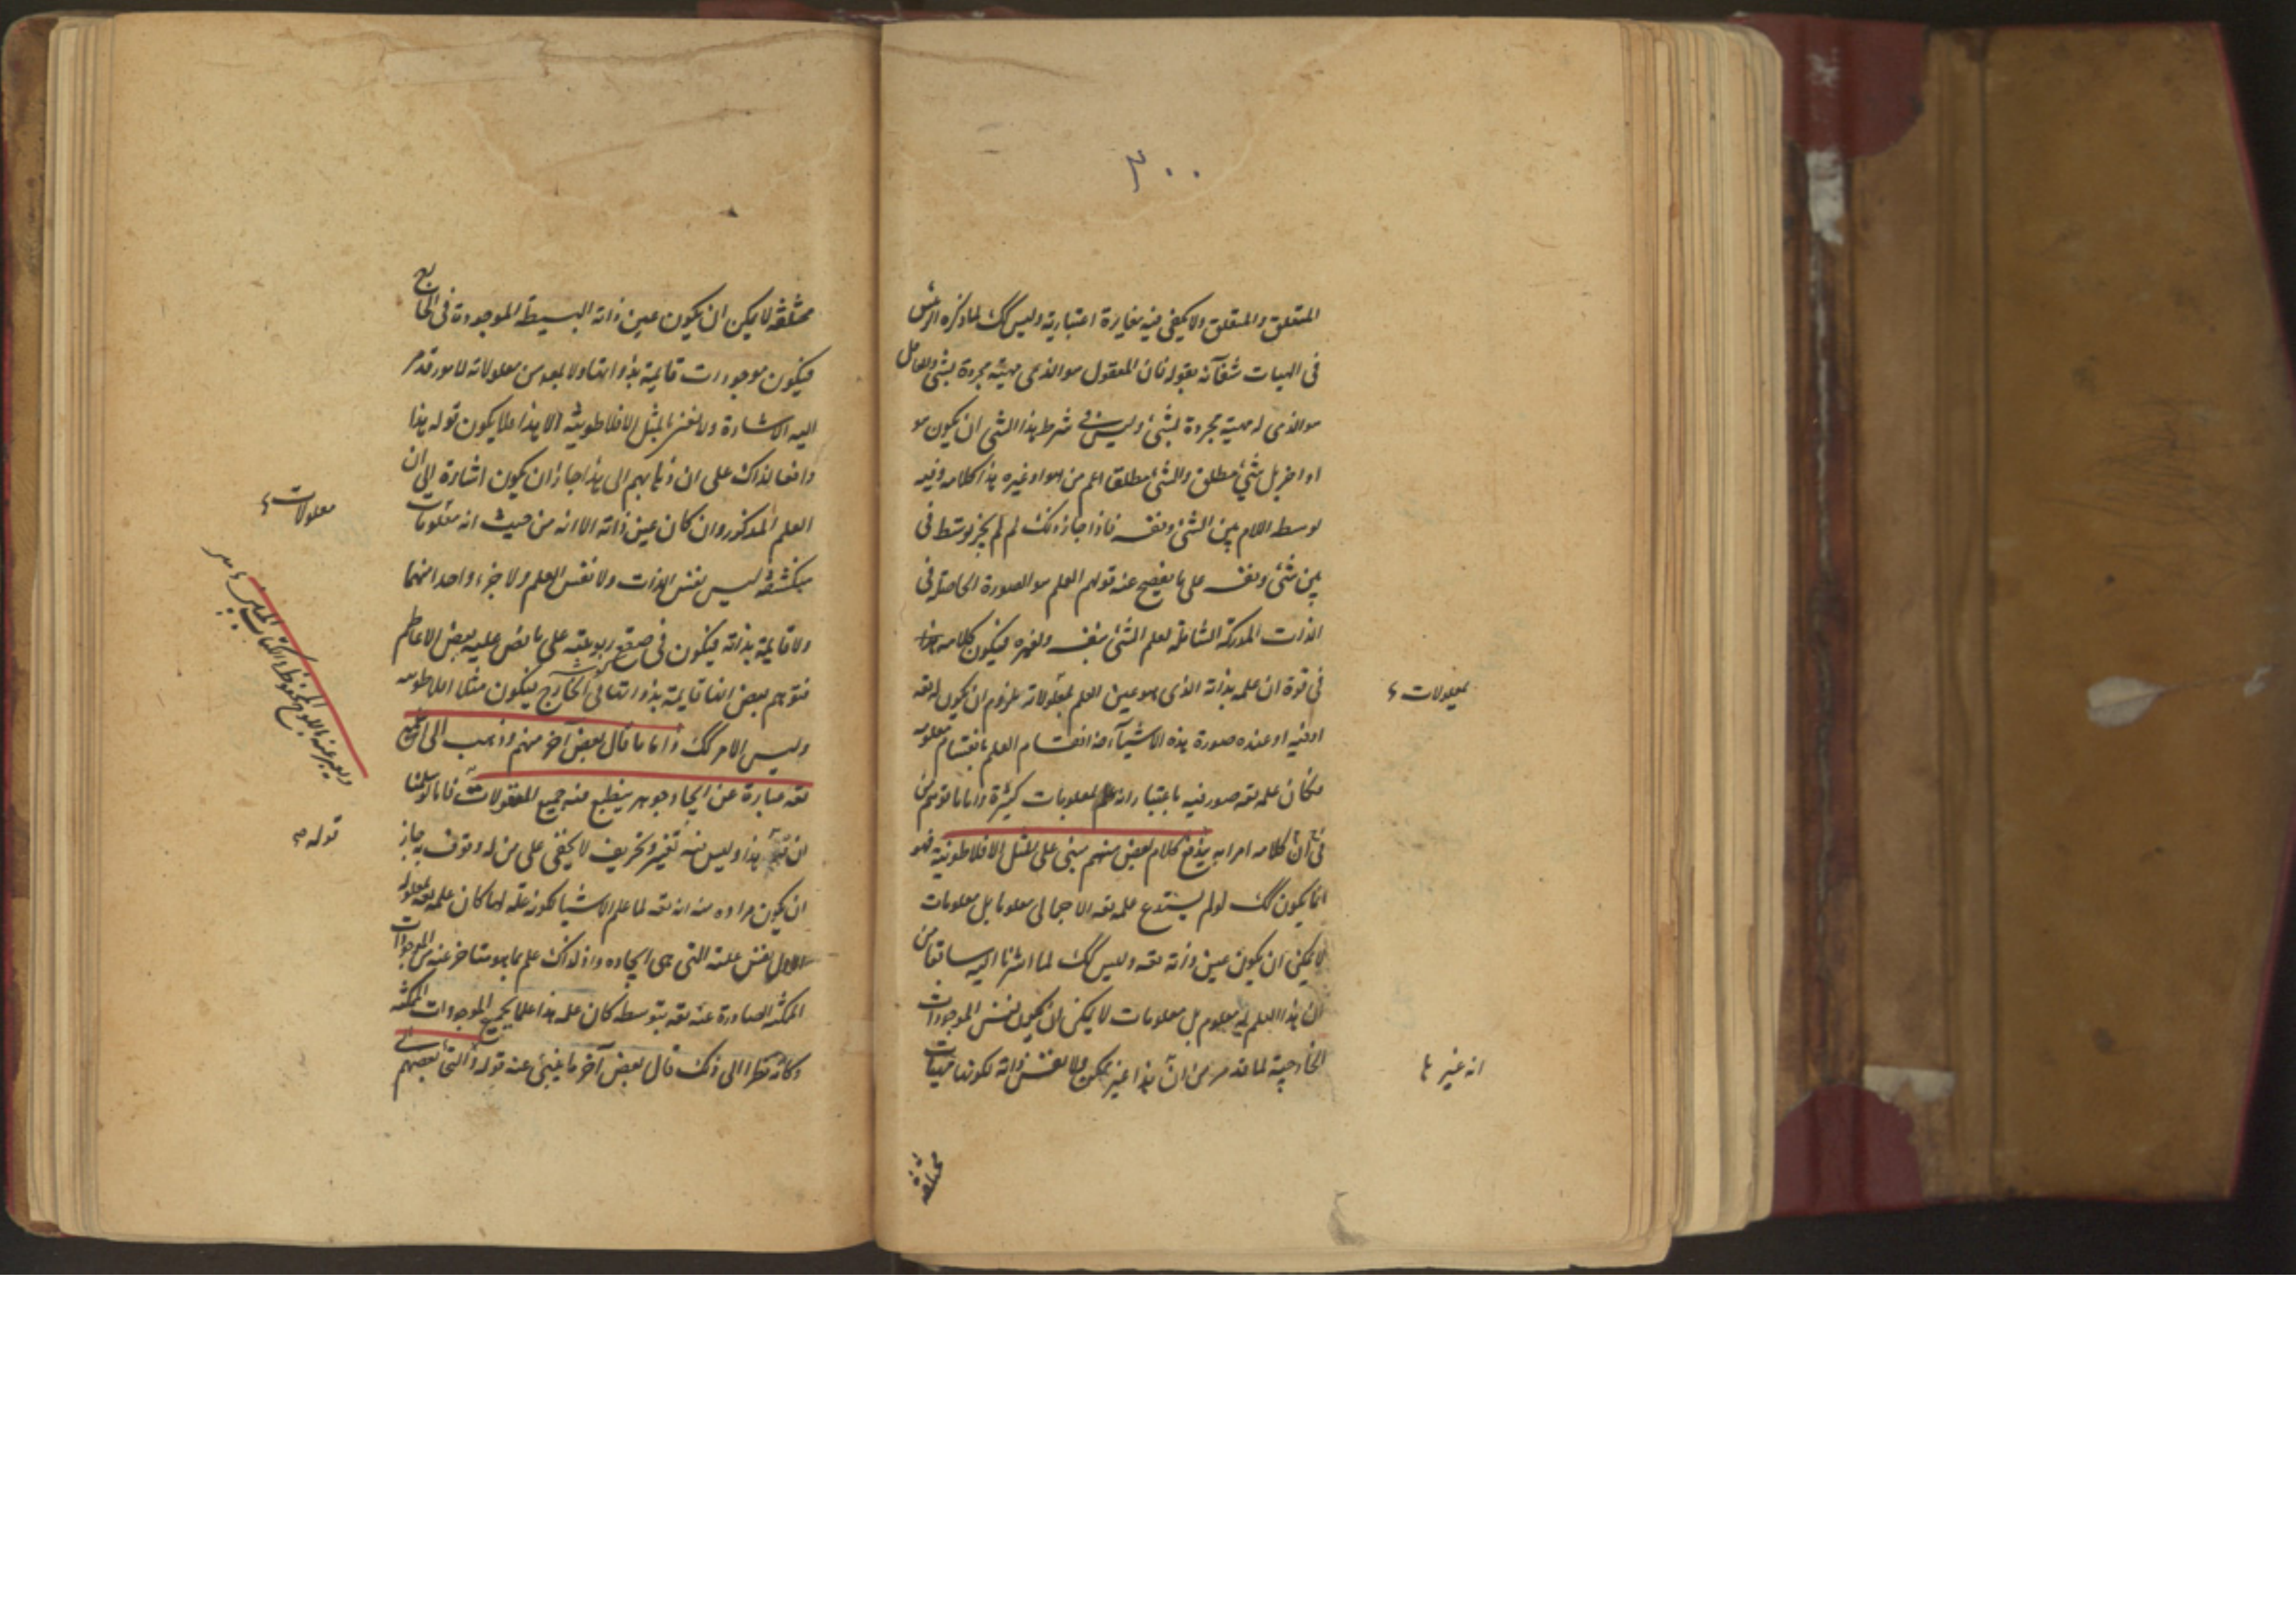 ٣٠٠
المتعلق والمتعلق ولا يكفى فيه مغايرة اعتبارية وليس كك لما ذكره الرئيس
فى الهيات شفائه بقوله فان المعقول هو الذى مهيته مجردة لشئ والعاقل
هو الذى له مهية مجردة لشئ وليس فى شرط هذا الشئ ان يكون هو
او اخر بل شئ مطلق والشئ مطلقا اعم من هو او غيره هذا كلامه وفيه
توسط اللام بين الشئ ونفسه فاذا جاز ذلك لم لم يجز توسط فى
بين شئ ونفسه على ما يفصح عنه قولهم العلم هو الصورة الحاصلة فى
الذات المدركة الشاملة لعلم الشئ بنفسه وبغيره فيكون كلامه هذا
فى قوة ان علمه بذاته الذى هو عين العلم بمعلولاته ملزوم ان يكون له تعه
او فيه او عنده صورة هذه الاشياء انقسام العلم بانقسام معلومه
فكان علمه تعه صور فيه باعتبار انه علم لمعلومات كثيرة واما ما توهم من
فى ان كلامه كلام بعض منهم مبنى على المثل الافلاطونية فهو
انما يكون كك لو لم يستدع علمه تعه الاجمالى معلوما بل معلومات
لا يمكن ان يكون عين ذاته تعه وليس كك لما اشرنا اليه سابقا من
ان هذا العلم له معلوم بل معلومات لا يمكن ان يكون نفس الموجودات
الخارجية لما قد مر من ان هذا غير ممكن ولا نفس ذاته لكونها مهيات
بمعلولات
انه غير
مختلفة
مختلفة لا يمكن ان يكون عين ذاته البسيطة الموجودة فى الخارج
فيكون موجودات قائمة بذواتها ولا بعد من معلولاته لما مر قدم
اليه الاشارة ولا نعنى بالمثل الافلاطونية الا هذا فلا يكون قوله هذا
دافعا لذاك على ان ذهابهم الى هذا جاز ان يكون اشارة الى ان
العلم المذكور وان كان عين ذاته الا انه من حيث انه معلومات
منكشفة ليس نفس الذات ولا نفس العلم ولا جزء واحد منهما
ولا قائمة بذاته فيكون فى صقع ربوبيته على ما نص عليه بعض الاعاظم
فتوهم بعض انها قائمة بذواتها فى الخارج فيكون مثلا افلاطونيه
وليس الامر كك واما ما قال بعض آخر منهم وذهب الى
تعه عبارة عن ايجاد جوهر ينطبع فيه جميع المعقولات فانا لو سلمنا
ان هذا وليس فيه تغيير وتحريف لا يخفى على من له وقوف به جاز
ان يكون مراده منه انه تعه لما علم الاشيا لكونه علة لها كان علمه تعه بمعلوله
الاول نفس علته التى هى ايجاده واذ لذلك علم بما هو متاخر عنه من الموجودات
الممكنة الصادرة عنه تعه بتوسطه كان علمه هذا علما بجميع الموجودات الممكنة
وكانه نظرا الى ذلك قال بعض آخر ما ينبئ عنه قوله والتى بعضهم
معلولات
ويعبر عنه باللوح المحفوظ والكتاب المبين
قوله